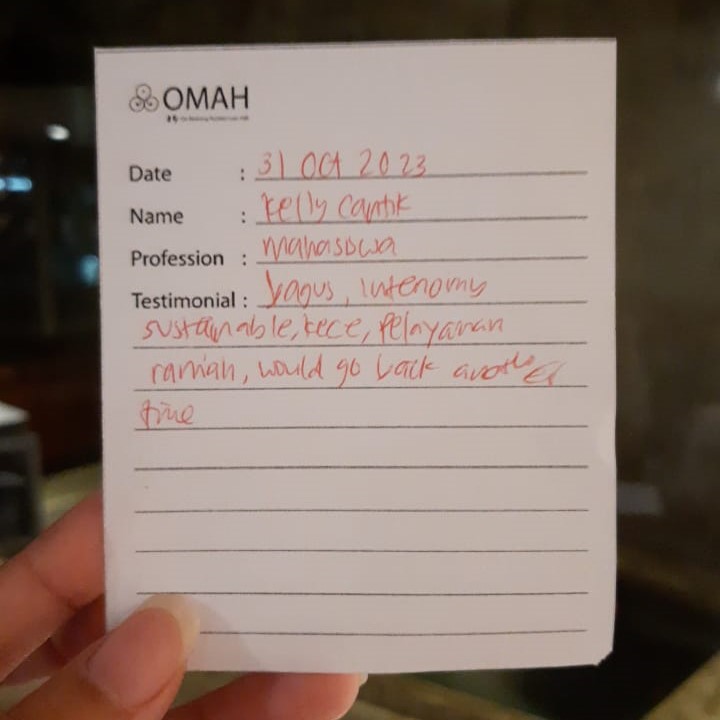 OMAH
Date : 31 Oct 2023
Name : Kelly Cantik
Profession : Mahasiswa
Testimonial : bagus, intenomy
sustainable, kece, pelayanan
ramah, would go back another
time